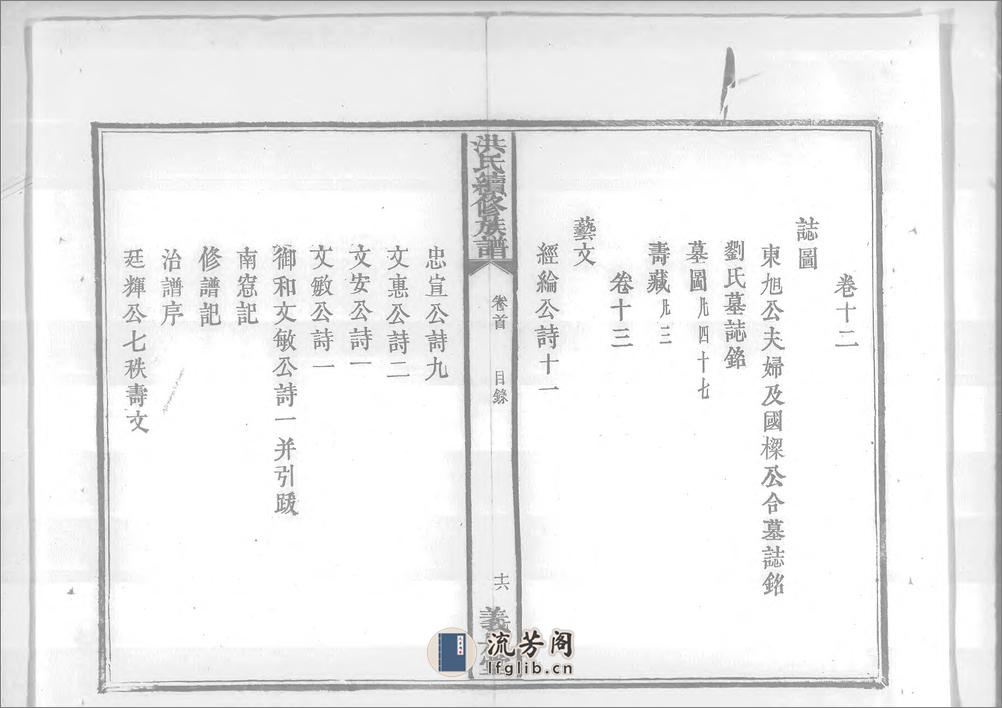 卷十二
誌圖
東旭公夫婦及國樑公合墓誌銘
劉氏墓誌銘
墓圖凡四十七
壽藏凡三
卷十三
藝文
經綸公詩十一
洪氏續修族譜
卷首 目錄
十六
義
忠宣公詩九
文惠公詩二
文安公詩一
文敏公詩一
御和文敏公詩一并引跋
南窓記
修譜記
治譜序
廷輝公七秩壽文
流芳阁
lfglib.cn